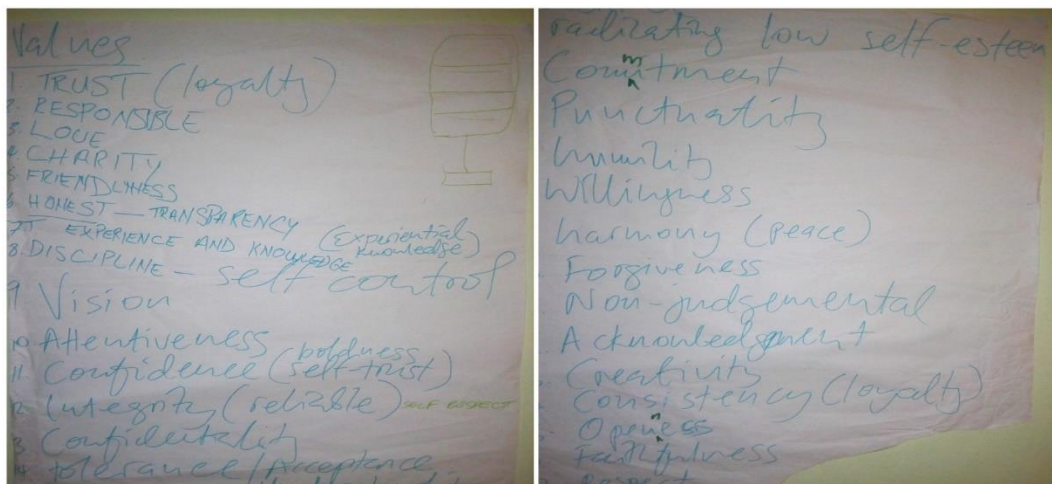 Values
1 TRUST (loyalty)
2. RESPONSIBLE
3. LOVE
4 CHARITY
5 FRIENDLYNESS
6 HONEST — TRANSPARENCY
7 EXPERIENCE AND KNOWLEDGE (Experiential knowledge)
8. DISCIPLINE — self control
9 Vision
10 Attentiveness
11 Confidence (boldness self-trust)
12 Integrity (reliable) SELF RESPECT
13 Confidentality
14 tolerance/Acceptance
radicating low self-esteem
Commitment
Punctuality
humility
Willingness
harmony (peace)
Forgiveness
Non-judgemental
Acknowledgment
Creativity
Consistency (loyalty)
Openness
Faithfulness
Respect